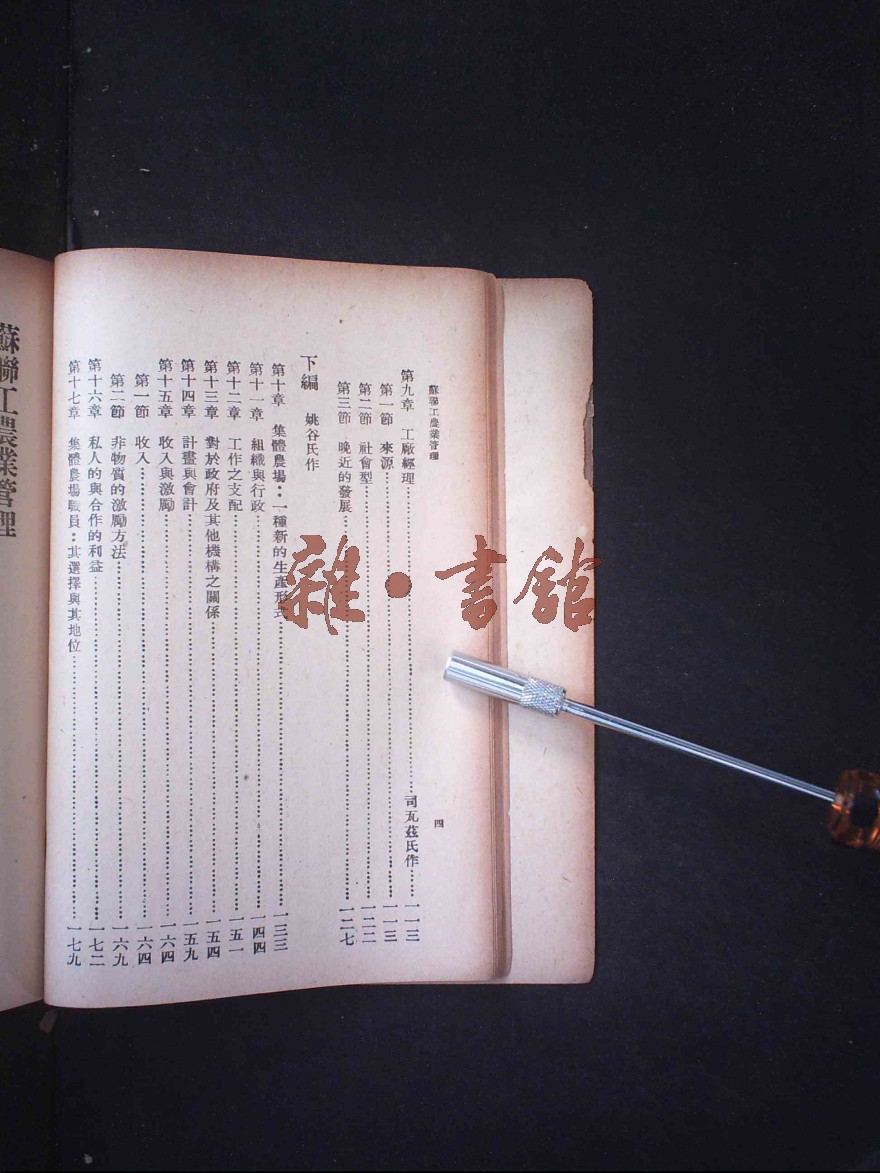 蘇聯工農業管理
四
第九章 工廠經理……司瓦茲氏作……一一三
第一節 來源……一一三
第二節 社會型……一二二
第三節 晚近的發展……一二七
下編 姚谷氏作
第十章 集體農場：一種新的生產形式……一三三
第十一章 組織與行政……一四四
第十二章 工作之支配……一五一
第十三章 對於政府及其他機構之關係……一五四
第十四章 計畫與會計……一五九
第十五章 收入與激勵……一六四
第一節 收入……一六四
第二節 非物質的激勵方法……一六九
第十六章 私人的與合作的利益……一七二
第十七章 集體農場職員：其選擇與其地位……一七九
蘇聯工農業管理
雜·書館